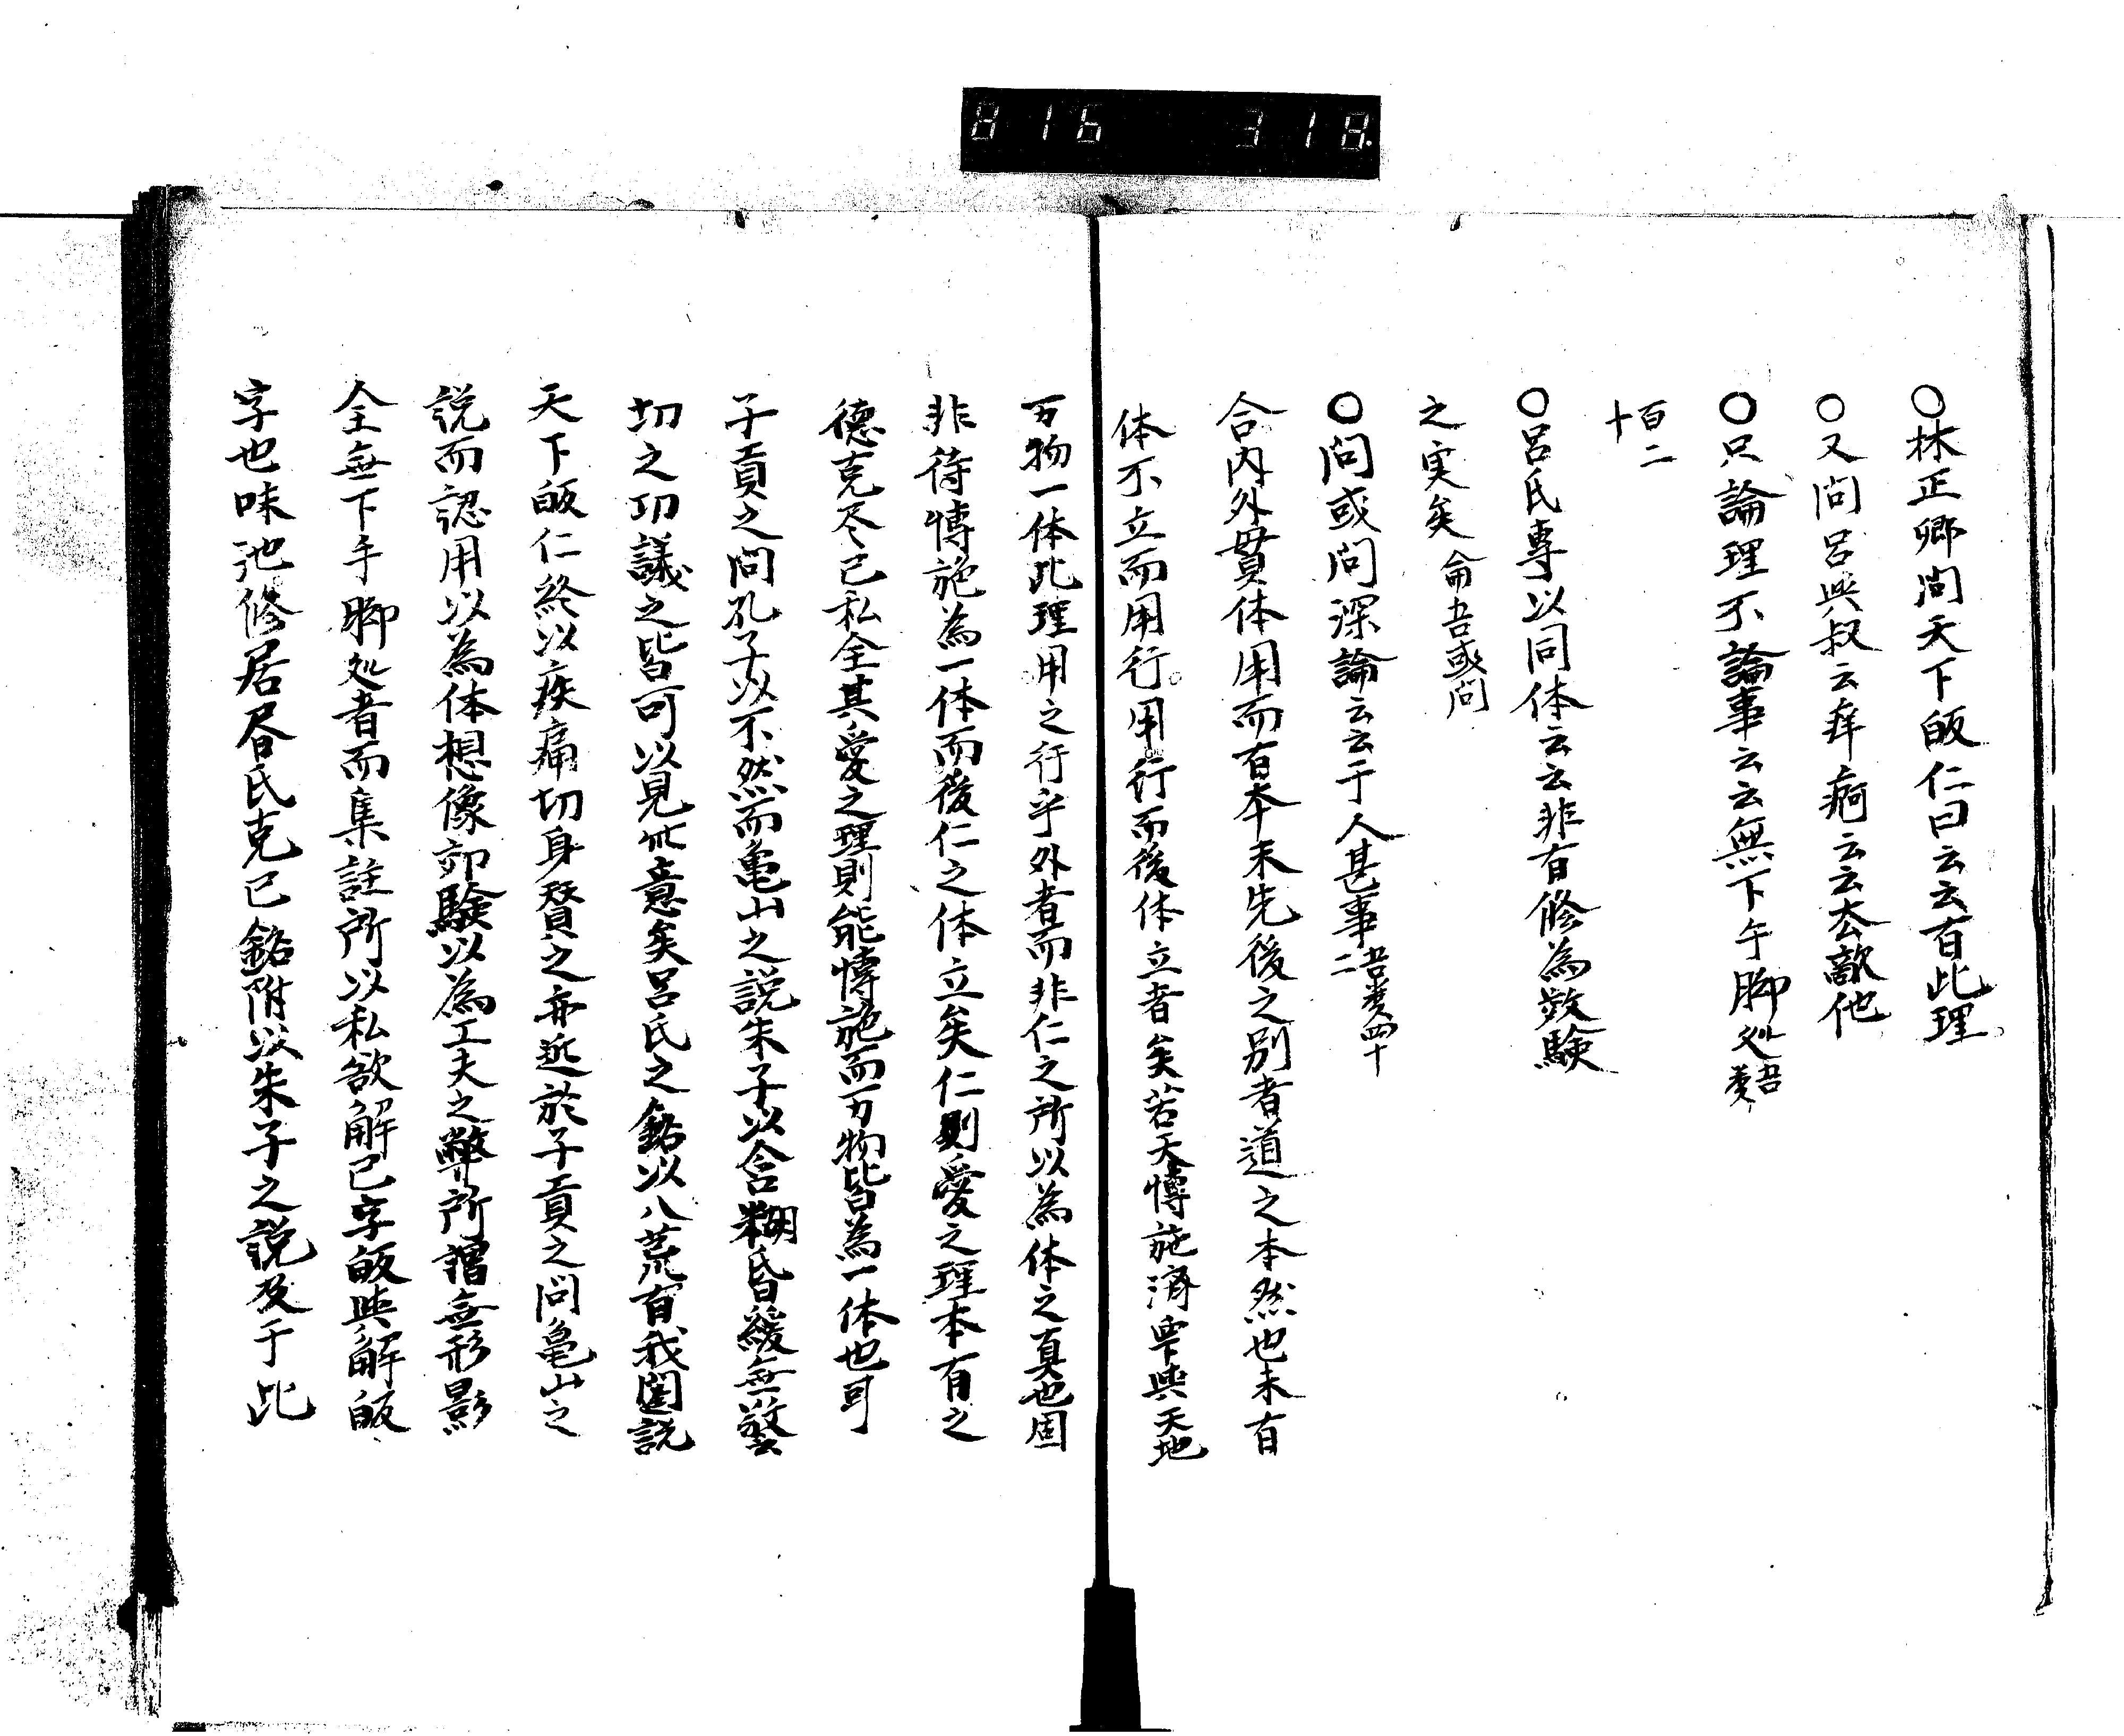 816 318
○林正卿問天下皈仁曰云云有此理
○又問呂與叔云痒痾云云去敵他
○只論理不論事云云無下手脚処 吾類
百二十
○呂氏専以同体云云非有修為效験
之実矣 侖吾或問
○問或問深論云云于人甚事 吾類四十二
合内外貫体用而有本末先後之別者道之本然也未有
体不立而用行用行而後体立者矣若夫博施済衆與天地
万物一体此理用之行乎外者而非仁之所以為体之真也固
非待博施為一体而後仁之体立矣仁則愛之理本有之
徳克尽己私全其愛之理則能博施而万物皆為一体也可
子貢之問孔子以不然而亀山之説朱子以含糊昏緩無警
切之功議之皆可以見此意矣呂氏之銘以八荒有我闥説
天下皈仁終以疾痛切身賛之亦近於子貢之問亀山之
説而認用以為体想像卯験以為工夫之弊所謂無形影
全無下手脚処者而集註所以私欲解己字皈與解皈
字也味池修居呂氏克己銘附以朱子之説及于此